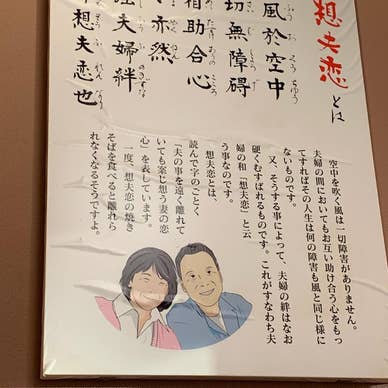 想夫恋とは
風於空中
切無障碍
相助合心
亦然
夫婦絆
想夫恋也
空中を吹く風は一切障害がありません。
夫婦の間においてもお互い助け合う心をもっ
てすればその人生は何の障害も風と同じ様に
ないものです。
又、そうする事によって、夫婦の絆はなお
硬くむすばれるものです。これがすなわち夫
婦の和「想夫恋」と云
う事なのです。
想夫恋とは、
読んで字のごとく
「夫の事を遠く離れて
いても案じ想う妻の恋
心」を表しています。
一度、想夫恋の焼き
そばを食べると離れら
れなくなるそうですよ。